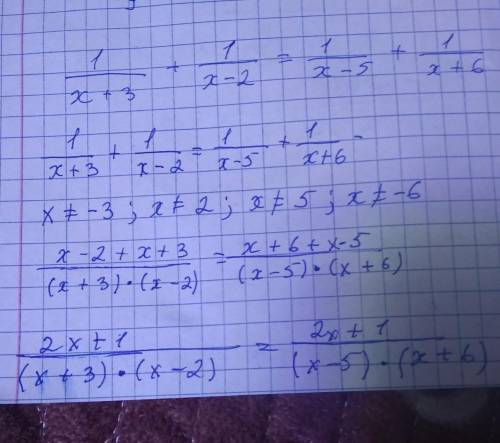 1/(x + 3) + 1/(x - 2) = 1/(x - 5) + 1/(x + 6)
1/(x+3) + 1/(x-2) = 1/(x-5) + 1/(x+6) -
x ≠ -3 ; x ≠ 2 ; x ≠ 5 ; x ≠ -6
(x - 2 + x + 3)/((x+3)·(x-2)) = (x + 6 + x - 5)/((x-5)·(x+6))
(2x + 1)/((x+3)·(x-2)) = (2x + 1)/((x-5)·(x+6))